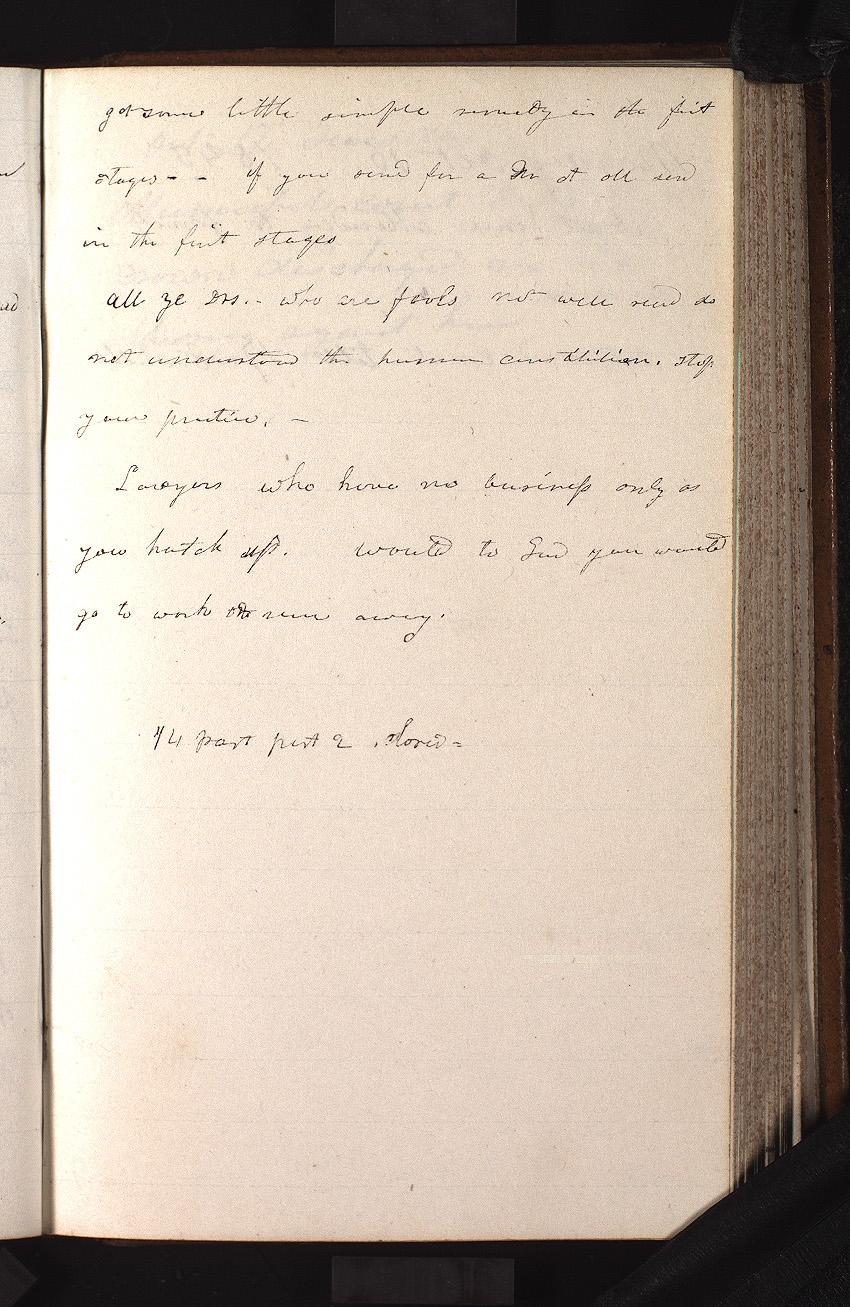 got some little simple remedy in the first
stages - - if you send for a Dr at all send
in the first stages
all ye Drs. - who are fools not well read do
not understand the human constitution. stop
your practice. -
Lawyers who have no business only as
you hatch up. would to God you would
go to work or run away.
1/4 past part 2 closed =